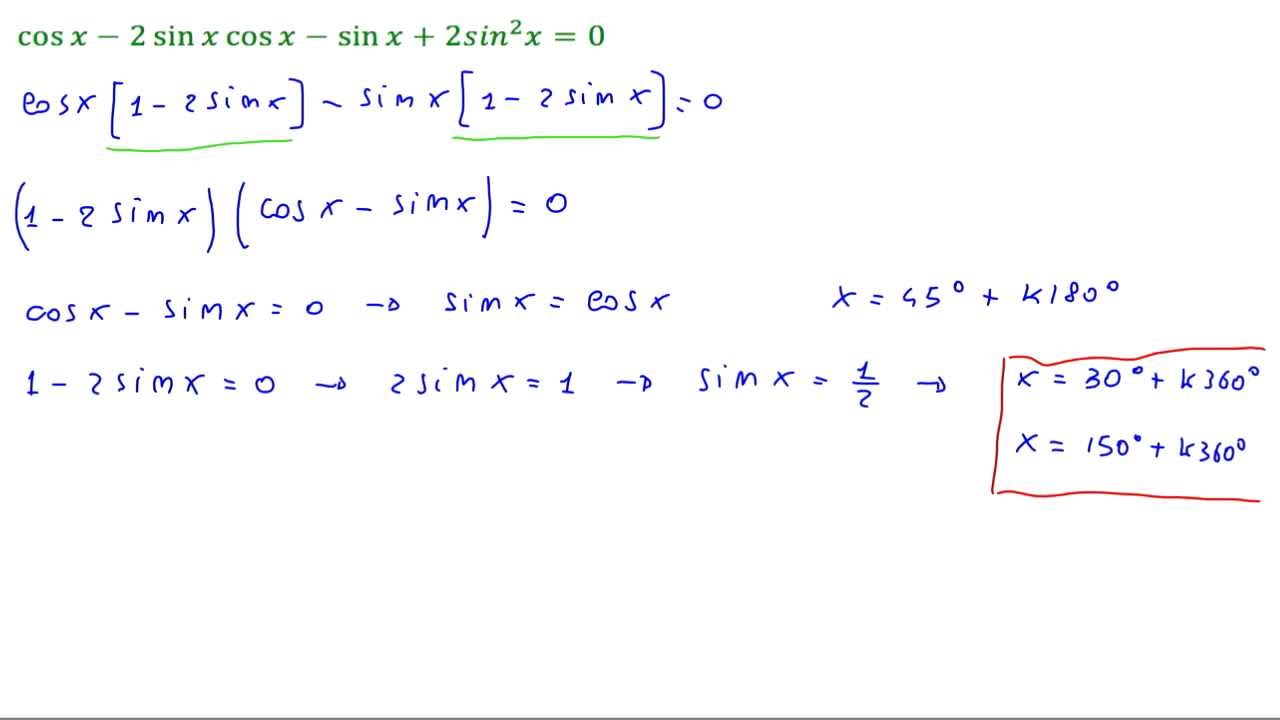 cos x − 2 sin x cos x − sin x + 2sin²x = 0
cos x [1 − 2 sin x] − sin x [1 − 2 sin x] = 0
(1 − 2 sin x) (cos x − sin x) = 0
cos x − sin x = 0 → sin x = cos x x = 45° + k180°
1 − 2 sin x = 0 → 2 sin x = 1 → sin x = 1/2 → x = 30° + k360°
x = 150° + k360°